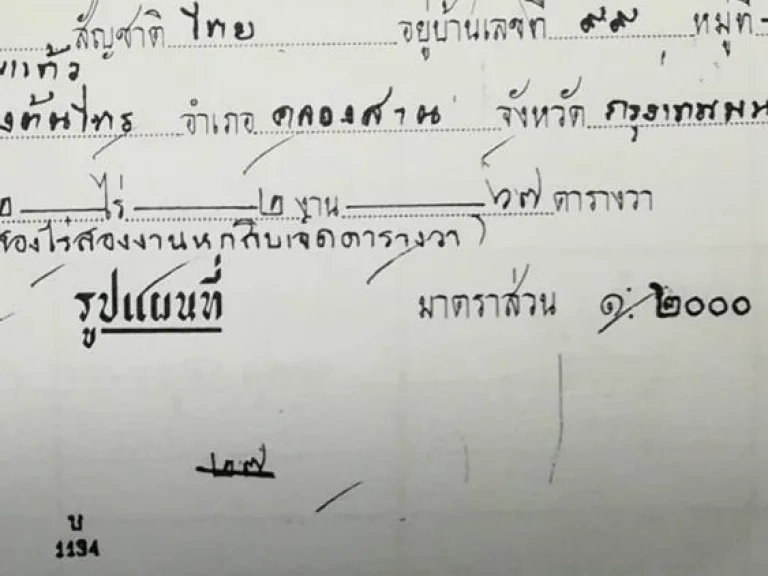 สัญชาติ ไทย อยู่บ้านเลขที่ ๙๙ หมู่ที่ -
แก้ว
ต้นไทร อำเภอ คลองสาน จังหวัด กรุงเทพมห
๒ ไร่ ๒ งาน ๖๗ ตารางวา
สองไร่สองงานหกสิบเจ็ดตารางวา)
รูปแผนที่ มาตราส่วน ๑: ๒๐๐๐
บ
1134